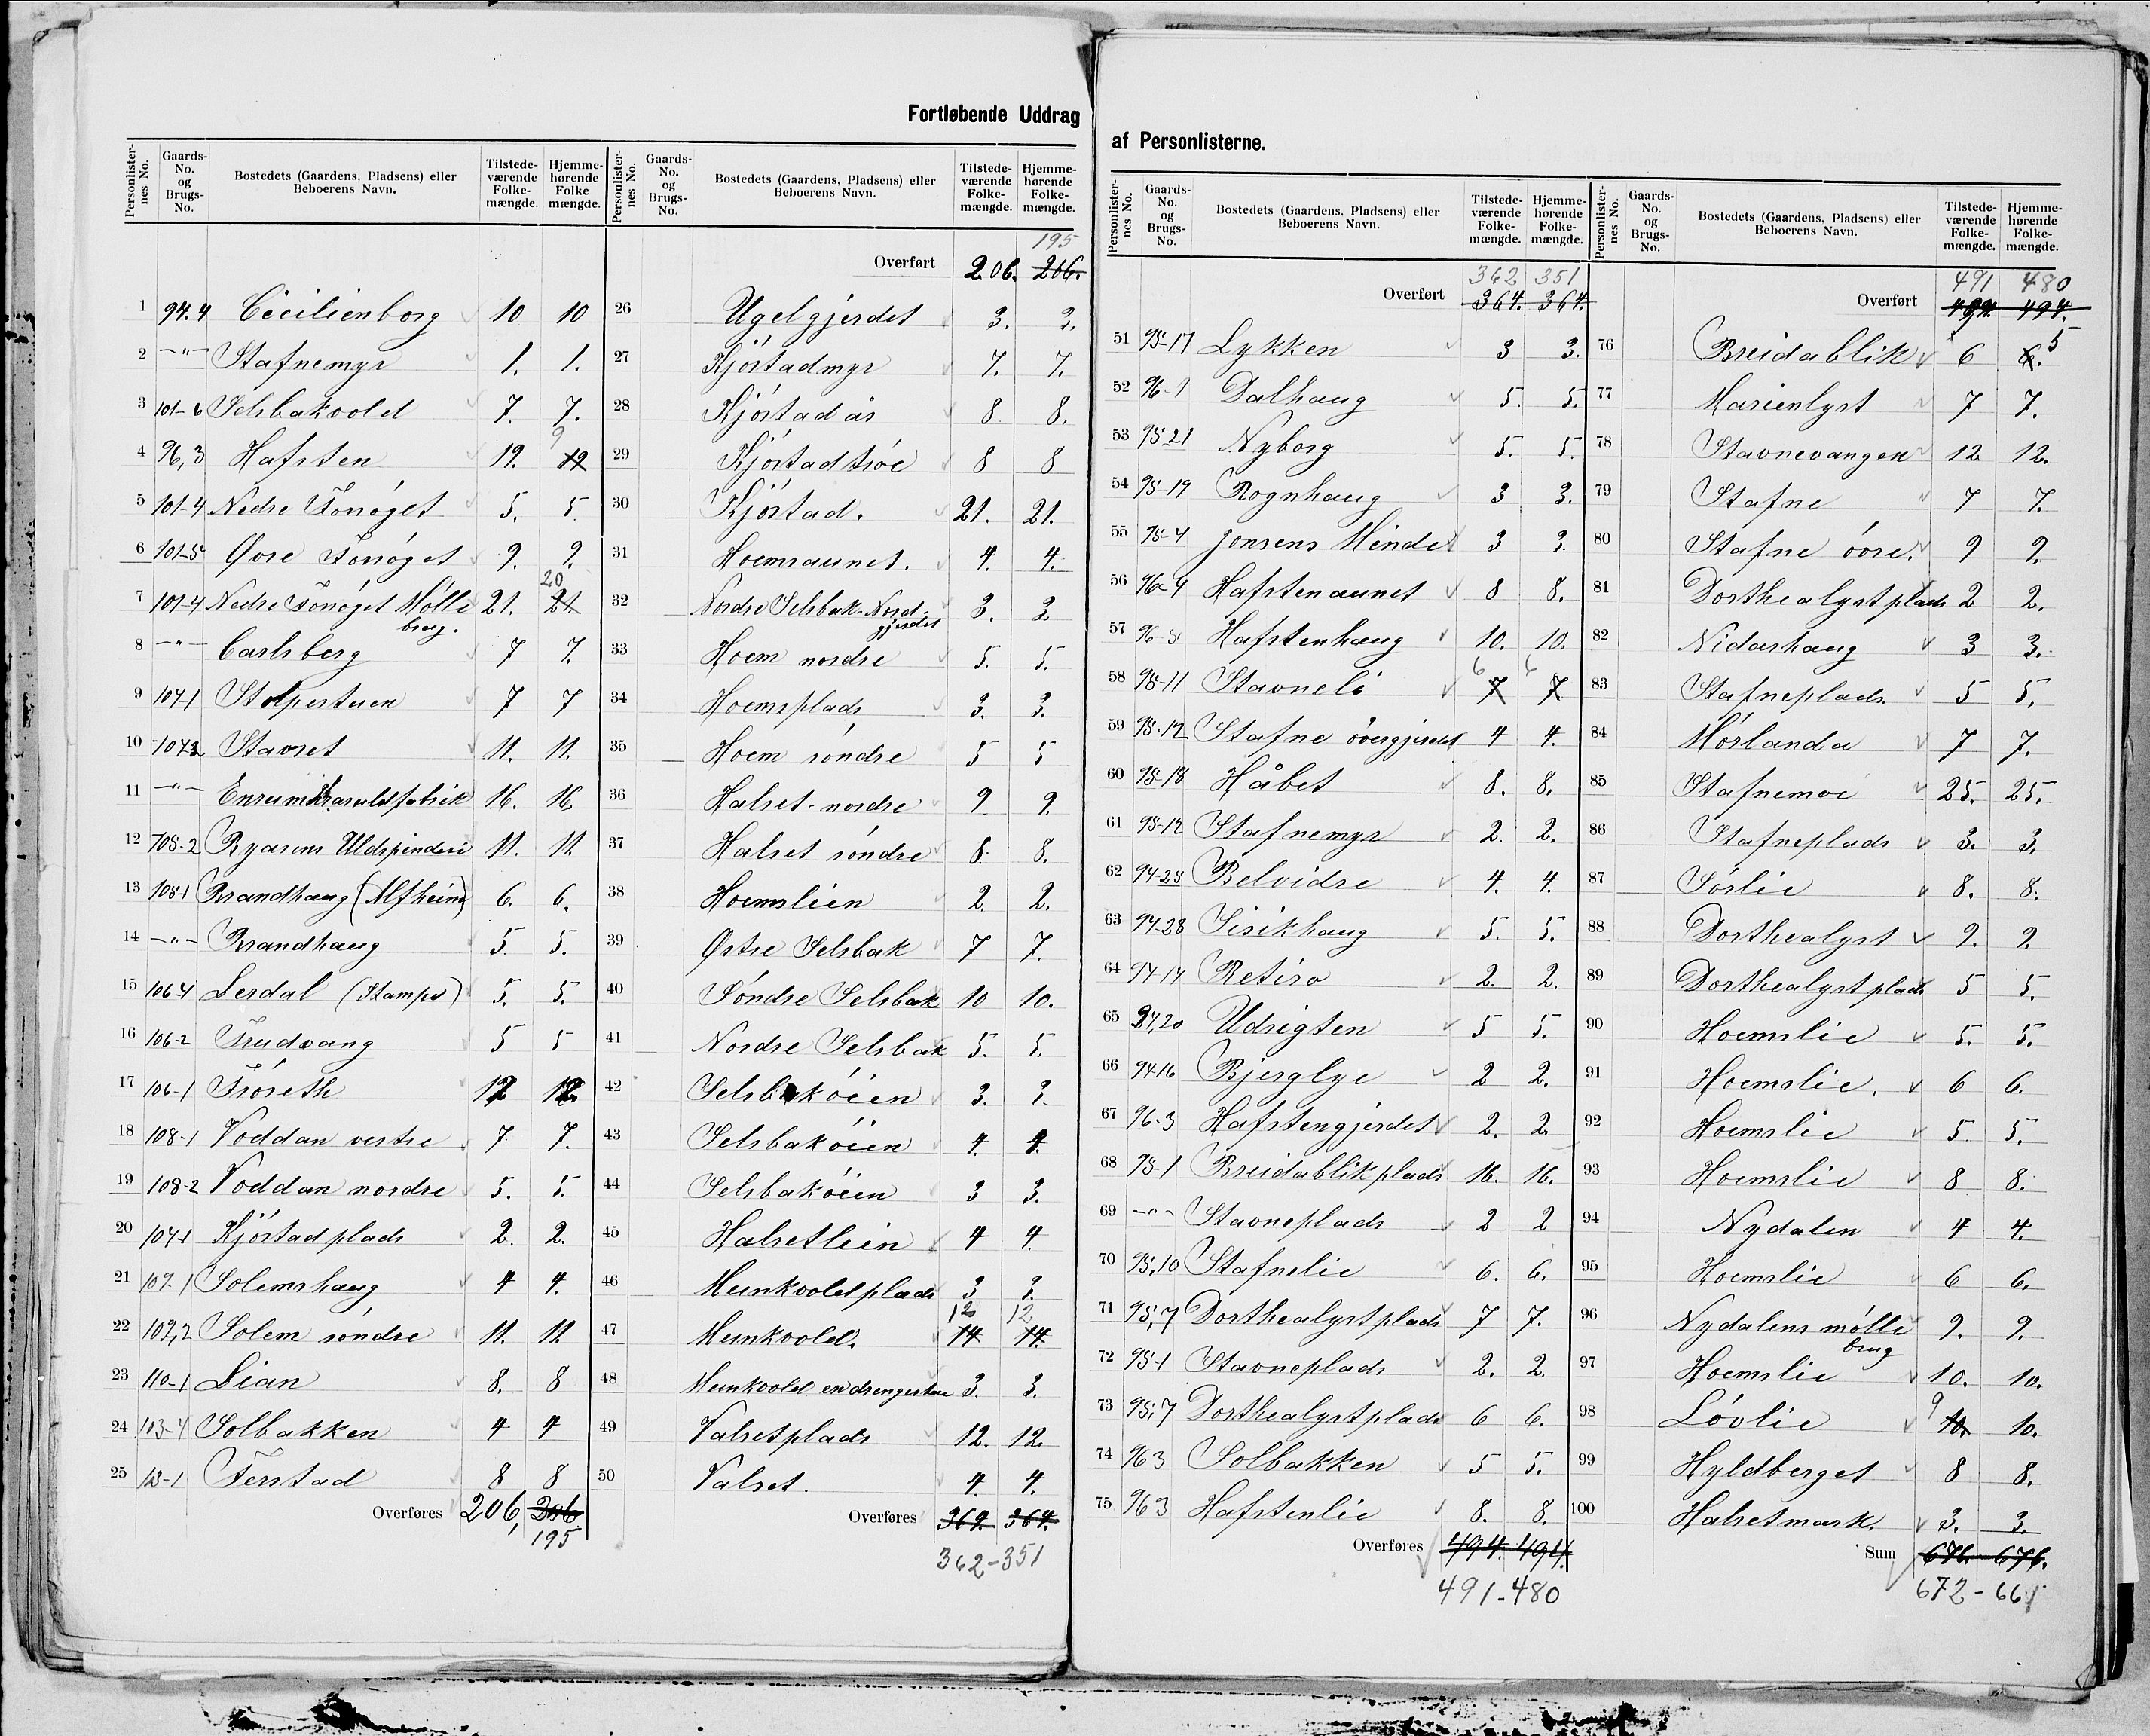 Fortløbende Uddrag
af Personlisterne.
Personlisternes No. Gaards-No. og Brugs-No. Bostedets (Gaardens, Pladsens) eller Beboerens Navn. Tilstedeværende Folkemængde. Hjemmehørende Folkemængde.
1 94.4 Cecilienborg 10 10
2 -"- Stafnemyr 1. 1.
3 101-6 Selsbakvold 7. 7.
4 96,3 Hafsten 19. 9
5 101-4 Nedre Fonøget 5. 5
6 101-5 Øvre Fonøget 9. 9.
7 101-4 Nedre Fonøget Møllebrug. 21. 21 20
8 -"- Carlsberg 7 7.
9 107-1 Stolpestuen 7 7
10 107-2 Stavset 11. 11.
11 -"- 16. 16
12 105-2 Ryasens Uldspinderi 11. 11.
13 105-1 Brandhaug (Alfheim) 6. 6.
14 -"- Brandhaug 5. 5.
15 106-4 Lerdal (Stamps) 5. 5.
16 106-2 Trudvang 5 5
17 106-1 Trøseth 12 12
18 108-1 Voddan vestre 7 7.
19 108-2 Voddan nordre 5. 5.
20 104-1 Kjøstadplads 2. 2.
21 109-1 Solemshaug 4 4.
22 109,2 Solem søndre 11. 11.
23 110-1 Lian 8. 8
24 103-4 Solbakken 4 4
25 123-1 Ferstad 8 8
Overføres 206, 206 195
Overført 206. 206. 195
26 Ugelgjerdet 3. 3.
27 Kjøstadmyr 7. 7.
28 Kjøstadås 8 8.
29 Kjøstadtrøe 8 8
30 Kjøstad. 21. 21.
31 Hoemsaunet. 4. 4.
32 Nordre Selsbak-Nordgjerdet 3. 3.
33 Hoem nordre 5. 5.
34 Hoemsplads 3. 3.
35 Hoem søndre 5 5
36 Halset-nordre 9. 9.
37 Halset søndre 8. 8.
38 Hoemslien 2. 2.
39 Østre Selsbak 7 7.
40 Søndre Selsbak 10 10.
41 Nordre Selsbak 5. 5.
42 Selsbakøien 3. 3.
43 Selsbakøien 4. 4.
44 Selsbakøien 3 3.
45 Halsetlein 4 4.
46 Munkvoldplads 3 3.
47 Munkvold. 14 12 14. 12
48 Munkvold endrengestue 3. 3.
49 Valsetplads 12. 12.
50 Valset. 4. 4.
Overføres 364. 364.
362-351
Overført 364. 364. 362 351
51 95-17 Lykken 3 3.
52 96-1 Dalhaug 5. 5.
53 95-21 Nyborg 5. 5.
54 95-19 Rognhaug 3 3.
55 95-4 Jonsens Minde 3 3.
56 96-4 Hafstenaunet 8 8.
57 96-5 Hafstenhaug 10. 10.
58 95-11 Stavneli 7 6 7 6
59 95-12 Stafne øvergjerdet 4 4.
60 95-18 Håbet 8. 8.
61 95-12 Stafnemyr 2. 2.
62 94-25 Belvidre 4. 4.
63 94-28 Sisikhaug 5. 5.
64 94-14 Retiro 2. 2.
65 94,20 Udsigten 5 5.
66 94-16 Bjerglye 2 2.
67 96-3 Hafstengjerdet 2. 2
68 95-1 Breidablikplads 16. 16.
69 -"- Stavneplads 2 2
70 95,10 Stafnelie 6. 6.
71 95,7 Dorthealystplads 7 7.
72 95-1 Stavneplads 2. 2.
73 95,7 Dorthealystplads 6 6.
74 96 3 Solbakken 5 5.
75 96 3 Hafstenlie 8. 8.
Overføres 494. 494.
491-480
Overført 494. 494. 491 480
76 Breidablik 6 6. 5
77 Marienlyst 7 7.
78 Stavnevangen 12 12.
79 Stafne 7 7.
80 Stafne øvre. 9 9.
81 Dorthealystplads 2 2.
82 Nidarhaug 3 3.
83 Stafneplads. 5 5.
84 Mørlanda 7 7.
85 Stafnemoe 25. 25.
86 Stafneplads 3. 3.
87 Sørlie 8. 8.
88 Dorthealyst 9. 9.
89 Dorthealystplads 5 5.
90 Hoemslie 5. 5.
91 Hoemslie. 6 6.
92 Hoemslie 5. 5.
93 Hoemslie 8 8.
94 Nydalen 4 4.
95 Hoemslie 6 6.
96 Nydalens møllebrug 9. 9.
97 Hoemslie 10. 10.
98 Løvlie 10. 9 10.
99 Hyldberget 8 8.
100 Halsetmark. 3. 3.
Sum 676. 676.
672-661